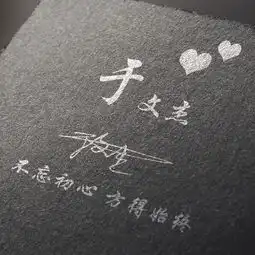 于文杰
不忘初心 方得始终